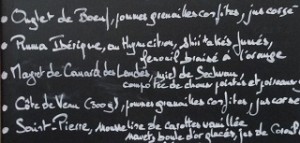 • Onglet de Boeuf, pommes grenailles confites, jus corsé
• Pluma Ibérique, au thym citron, shiitakés fumés,
fenouil braisé à l'orange
• Magret de Canard des Landes, miel de Sechuan
compotée de choux pointus et poireaux
• Côte de Veau (300g), pommes grenailles confites, jus corsé
• Saint-Pierre, mousseline de carottes vanillée
navets boule d'or glacés, jus de Corail